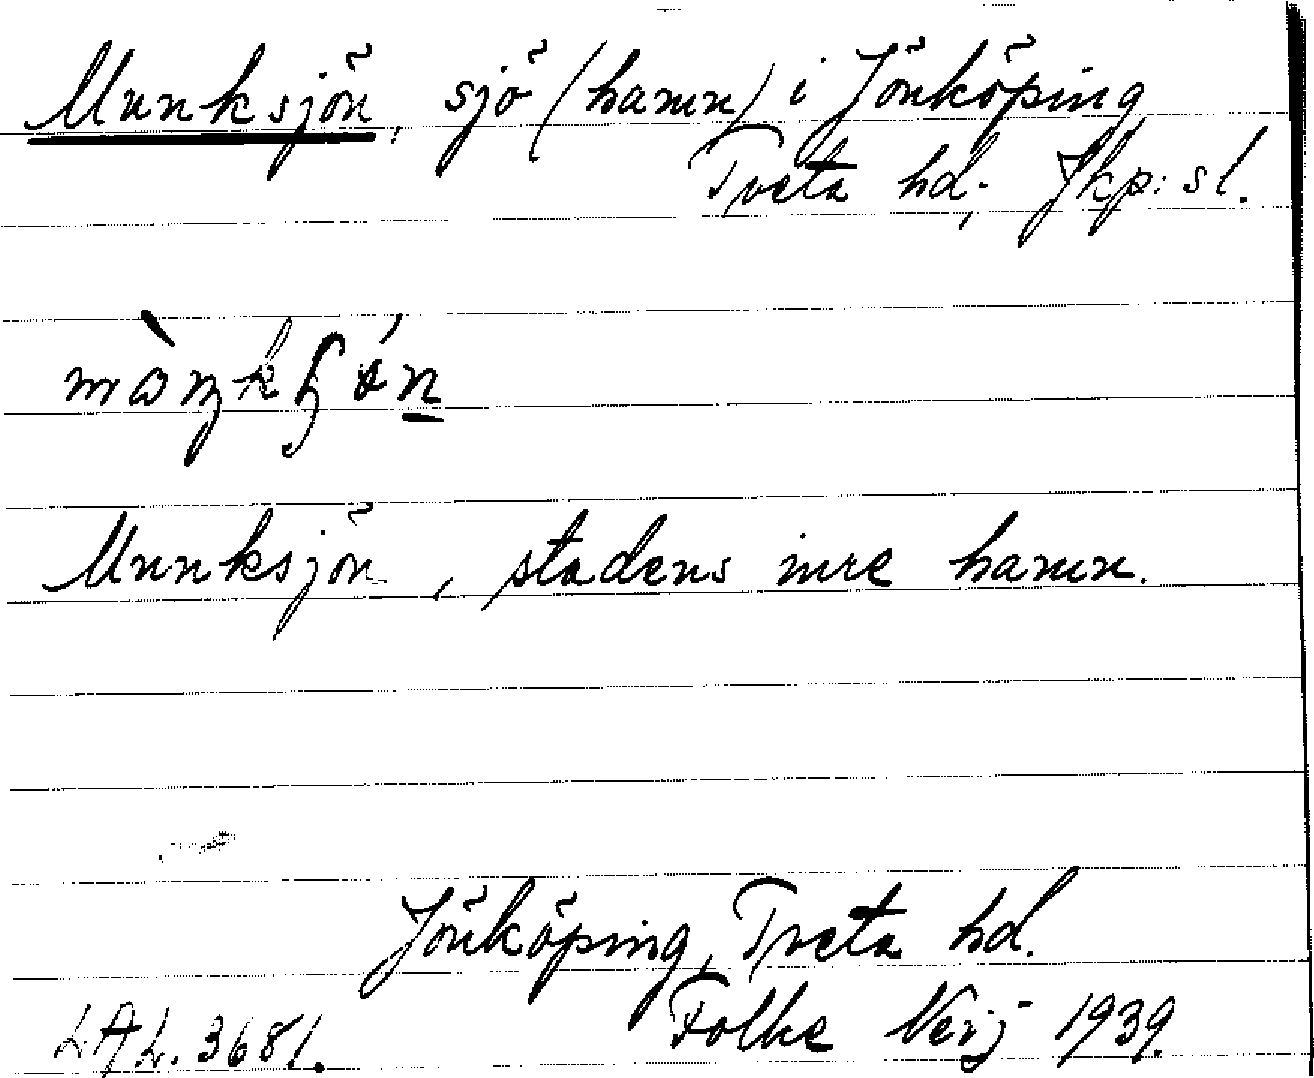 Munksjön, sjö (hamn) i Jönköping
Tveta hd; Jkp: sl.
Munksjön, stadens inre hamn.
Jönköping, Tveta hd.
LAL. 3681. Folke 1939.